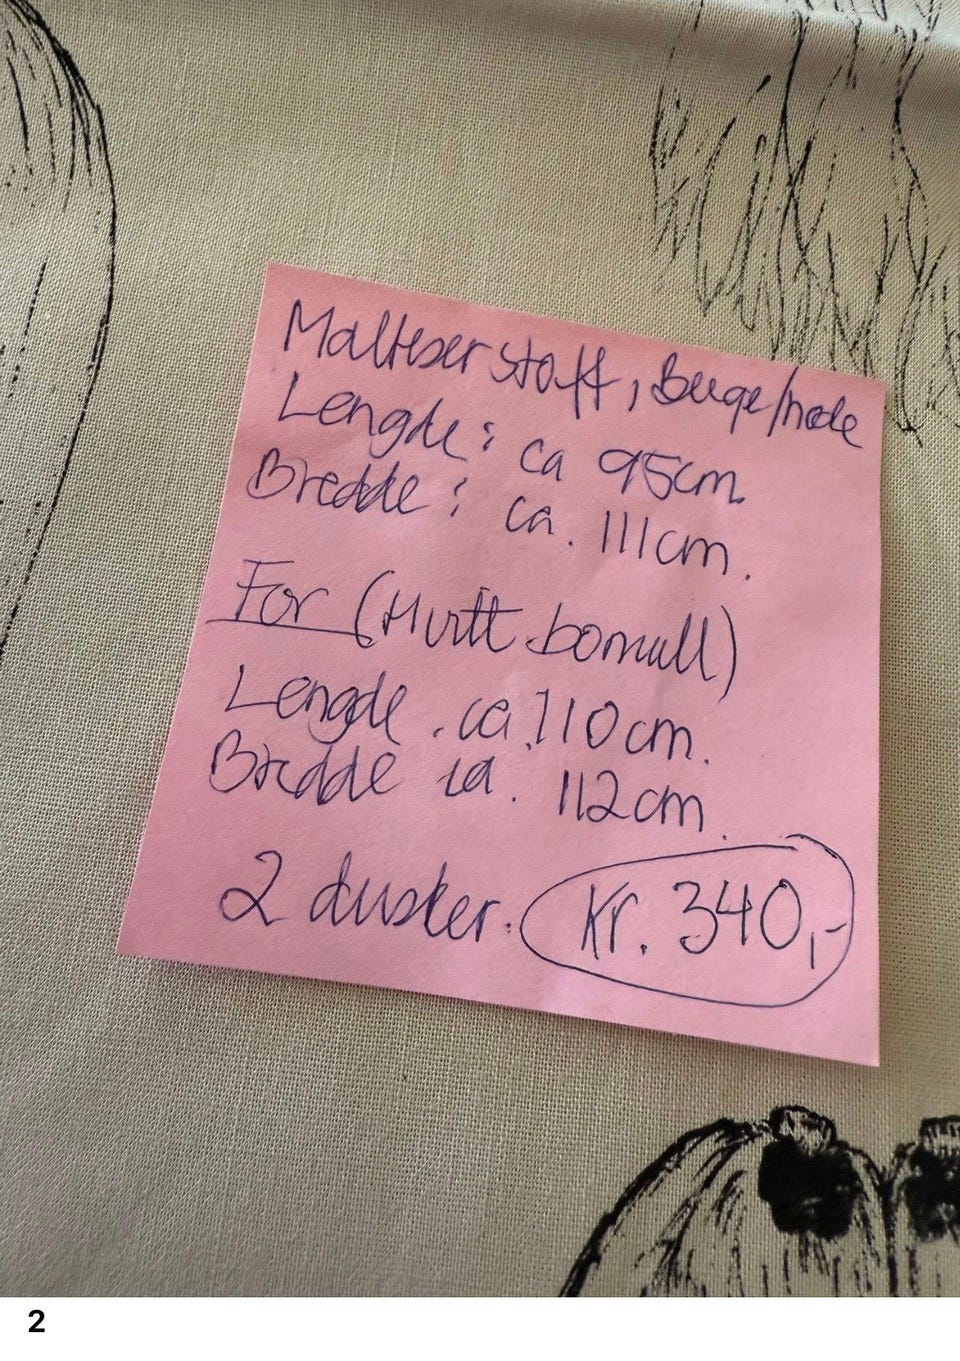 Malteser stoff, Beige/hvite
Lengde: ca 95cm.
Bredde: ca. 111cm.
For (Hvitt bomull)
Lengde. ca. 110cm.
Bredde ca. 112cm.
2 dusker. Kr. 340,-
2